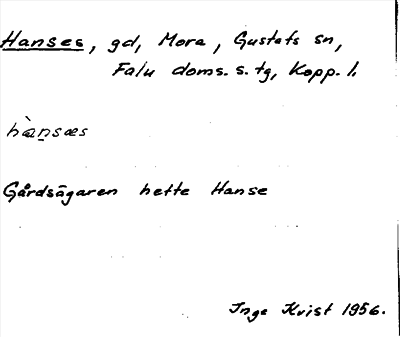 Hanses, gd, Mora, Gustafs sn,
Falu doms. s. tg, Kopp. l.
hànsæs
Gårdsägaren hette Hanse
Inga Kvist 1956.